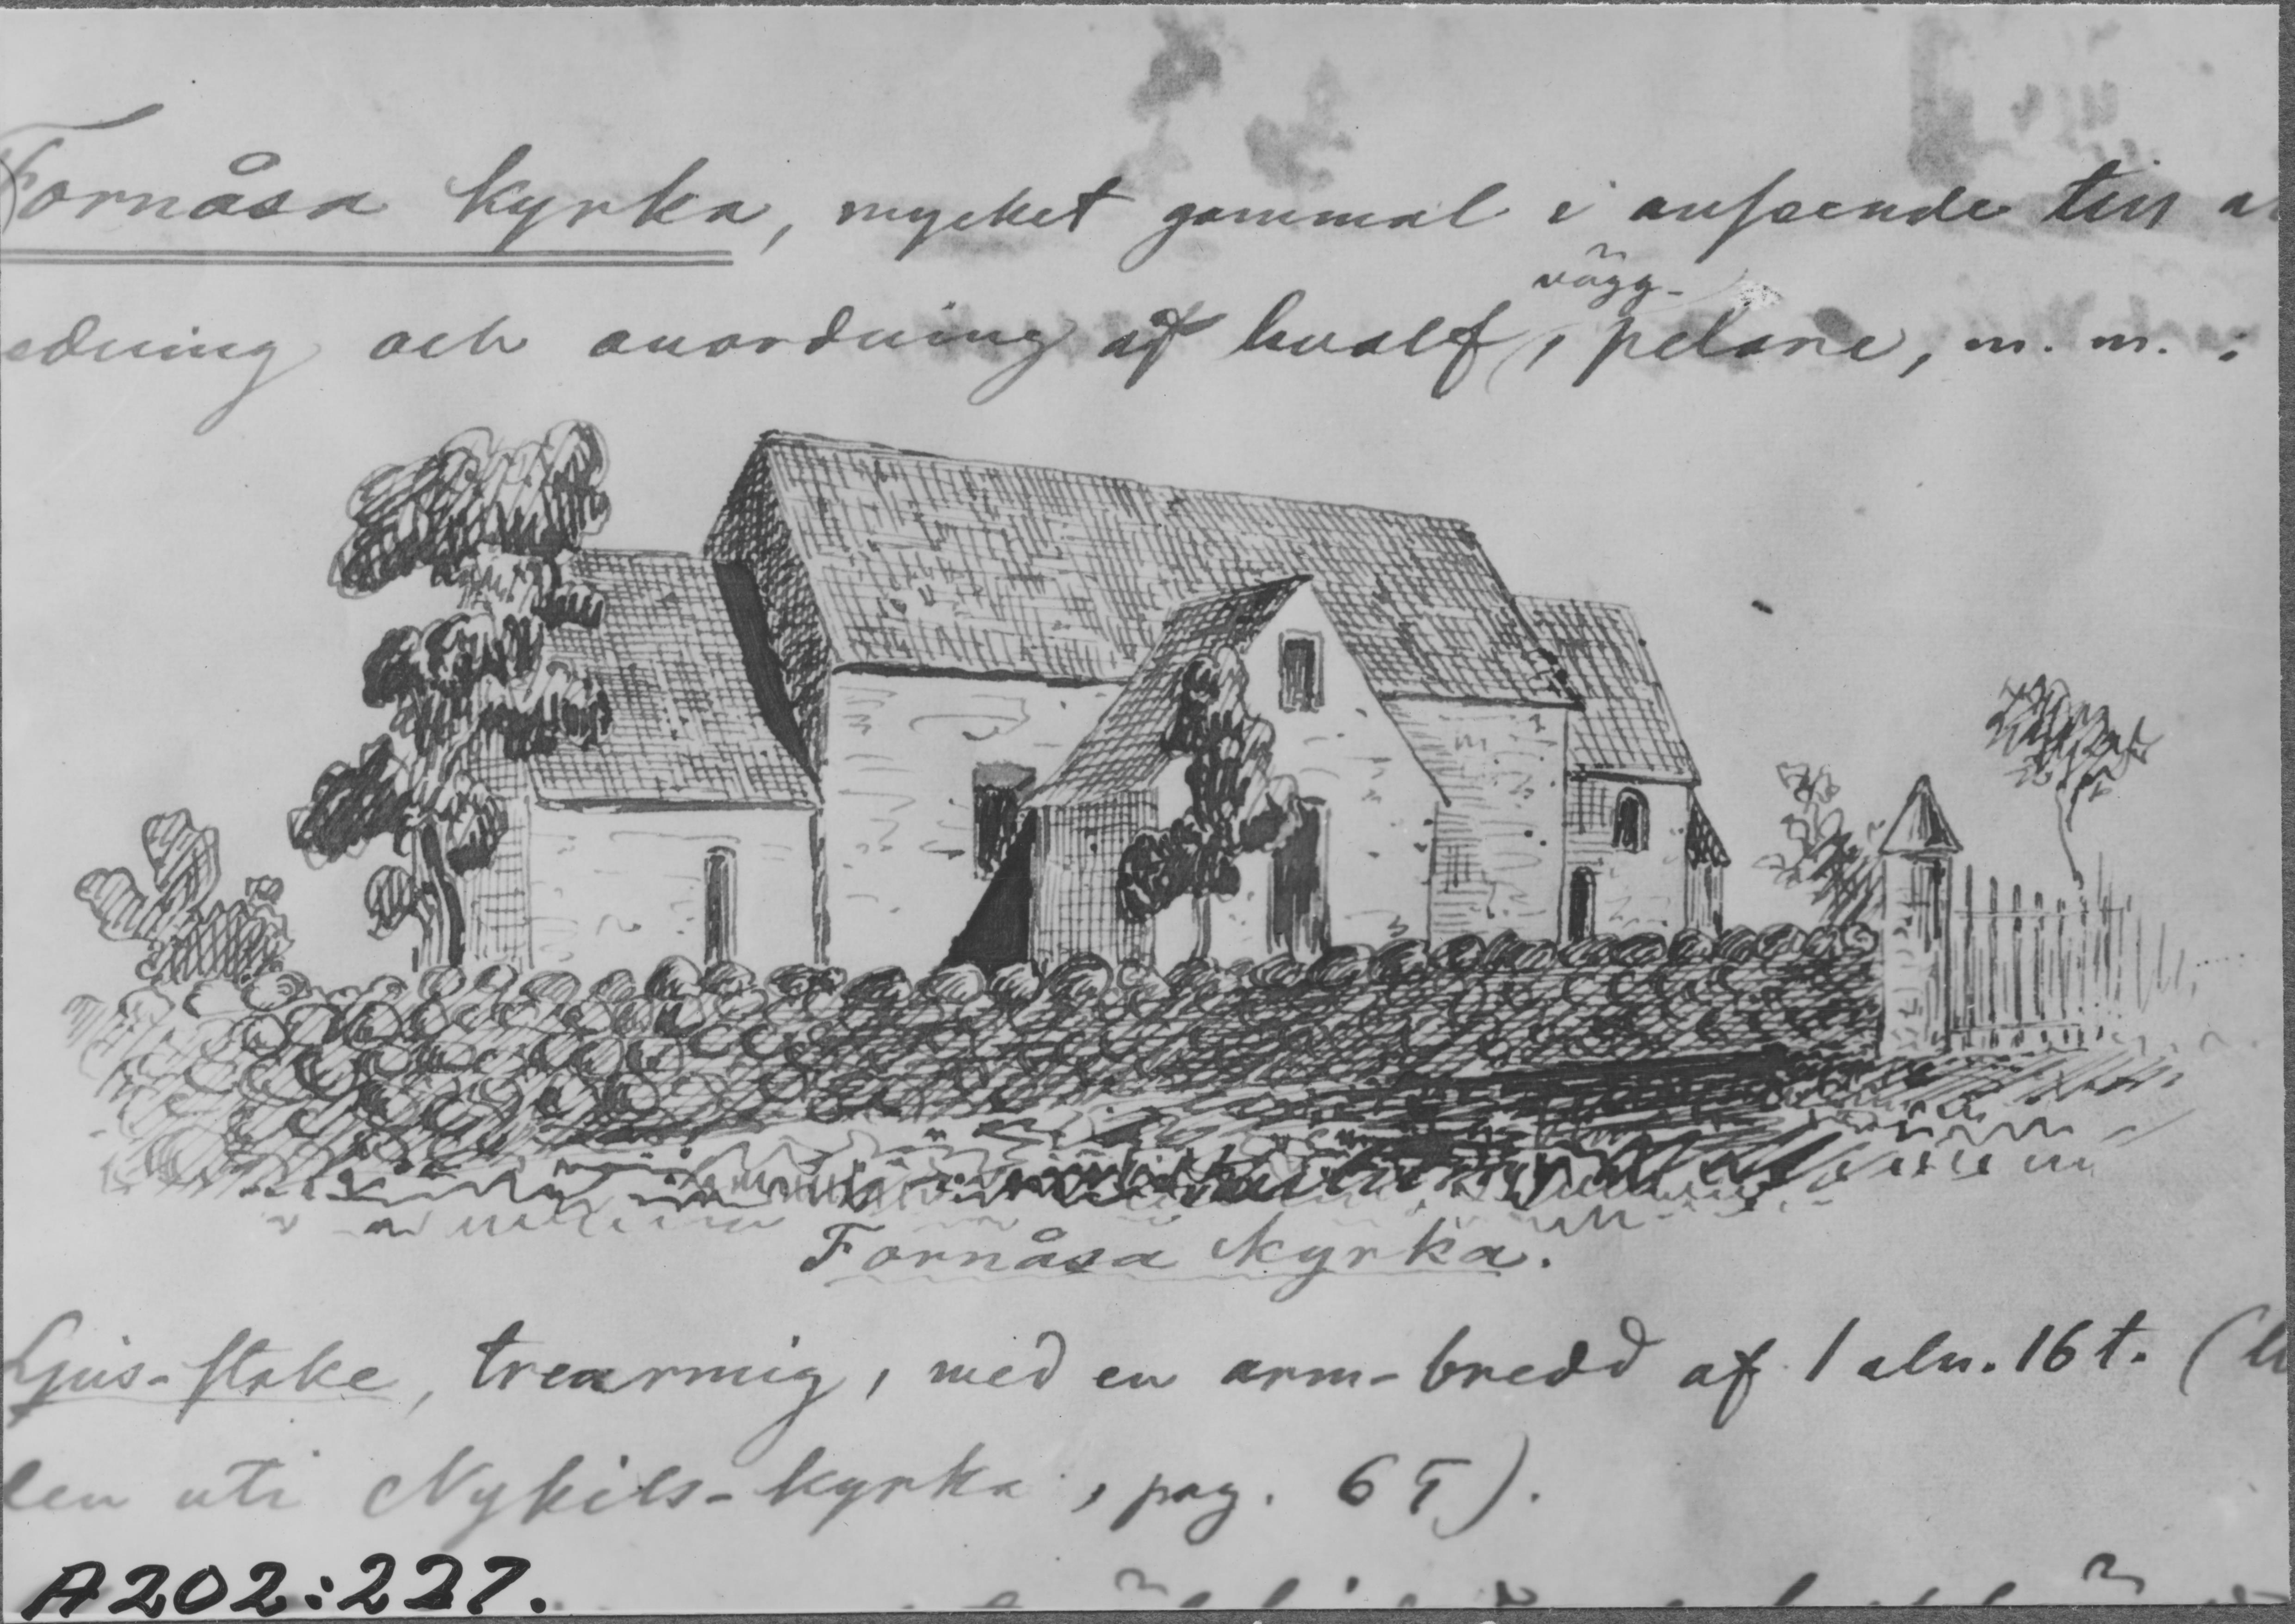 Fornåsa Kyrka, mycket gammal i anseende till
vägg-
edning och anordning af hvalf, pelare, m. m. i
Fornåsa Kyrka.
Ljus-stake, trearmig, med en arm-bredd af 1 aln. 16 t. (
len uti Nykils-kyrka, pag.
A202:227.